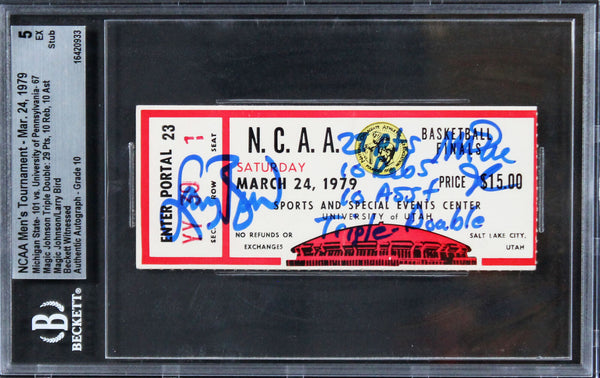 NCAA Men's Tournament - Mar. 24, 1979
Michigan State- 101 vs. University of Pennsylvania- 67
Magic Johnson Triple Double: 29 Pts, 10 Reb, 10 Ast
Magic Johnson/Larry Bird
Beckett Witnessed
Authentic Autograph - Grade 10
5
EX
Stub
16420933
BECKETT
ENTER PORTAL 23
SEC.
ROW
SEAT
1
N.C.A.A.
BASKETBALL
FINALS
SATURDAY
MARCH 24, 1979
PRICE $15.00
SPORTS AND SPECIAL EVENTS CENTER
UNIVERSITY of UTAH
NO REFUNDS OR
EXCHANGES
SALT LAKE CITY,
UTAH
Larry Bird
10 Rebs
10 Asst
Triple-Double